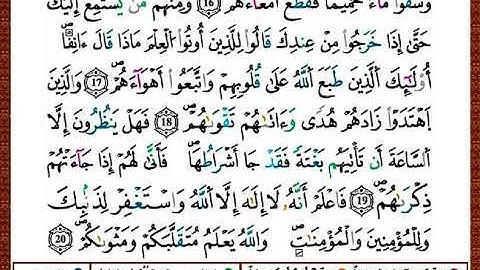 وَسُقُوا۟ مَآءً حَمِيمًا فَقَطَّعَ أَمْعَآءَهُمْ ١٦ وَمِنْهُم مَّن يَسْتَمِعُ إِلَيْكَ
حَتَّىٰ إِذَا خَرَجُوا۟ مِنْ عِندِكَ قَالُوا۟ لِلَّذِينَ أُوتُوا۟ اَلْعِلْمَ مَاذَا قَالَ ءَانِفًا
أُو۟لَٰٓئِكَ اَلَّذِينَ طَبَعَ اَللَّهُ عَلَىٰ قُلُوبِهِمْ وَاتَّبَعُوا۟ أَهْوَآءَهُمْ 17 وَالَّذِينَ
اَهْتَدَوْا۟ زَادَهُمْ هُدًى وَءَاتَىٰهُمْ تَقْوَىٰهُمْ 18 فَهَلْ يَنظُرُونَ إِلَّا
اَلسَّاعَةَ أَن تَأْتِيَهُم بَغْتَةً فَقَدْ جَا أَشْرَاطُهَا فَأَنَّىٰ لَهُمْ إِذَا جَآءَتْهُمْ
ذِكْرَىٰهُمْ 19 فَاعْلَمْ أَنَّهُۥ لَا إِلَٰهَ إِلَّا اَللَّهُ وَاسْتَغْفِرْ لِذَنۢبِكَ
وَلِلْمُؤْمِنِينَ وَالْمُؤْمِنَٰتِ وَاللَّهُ يَعْلَمُ مُتَقَلَّبَكُمْ وَمَثْوَىٰكُمْ 20